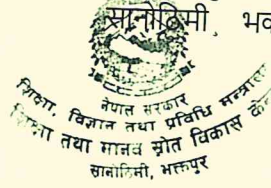 सानोठिमी, भक
नेपाल सरकार
शिक्षा, विज्ञान तथा प्रविधि मन्त्राल
शिक्षा तथा मानव स्रोत विकास के
सानोठिमी, भक्तपुर